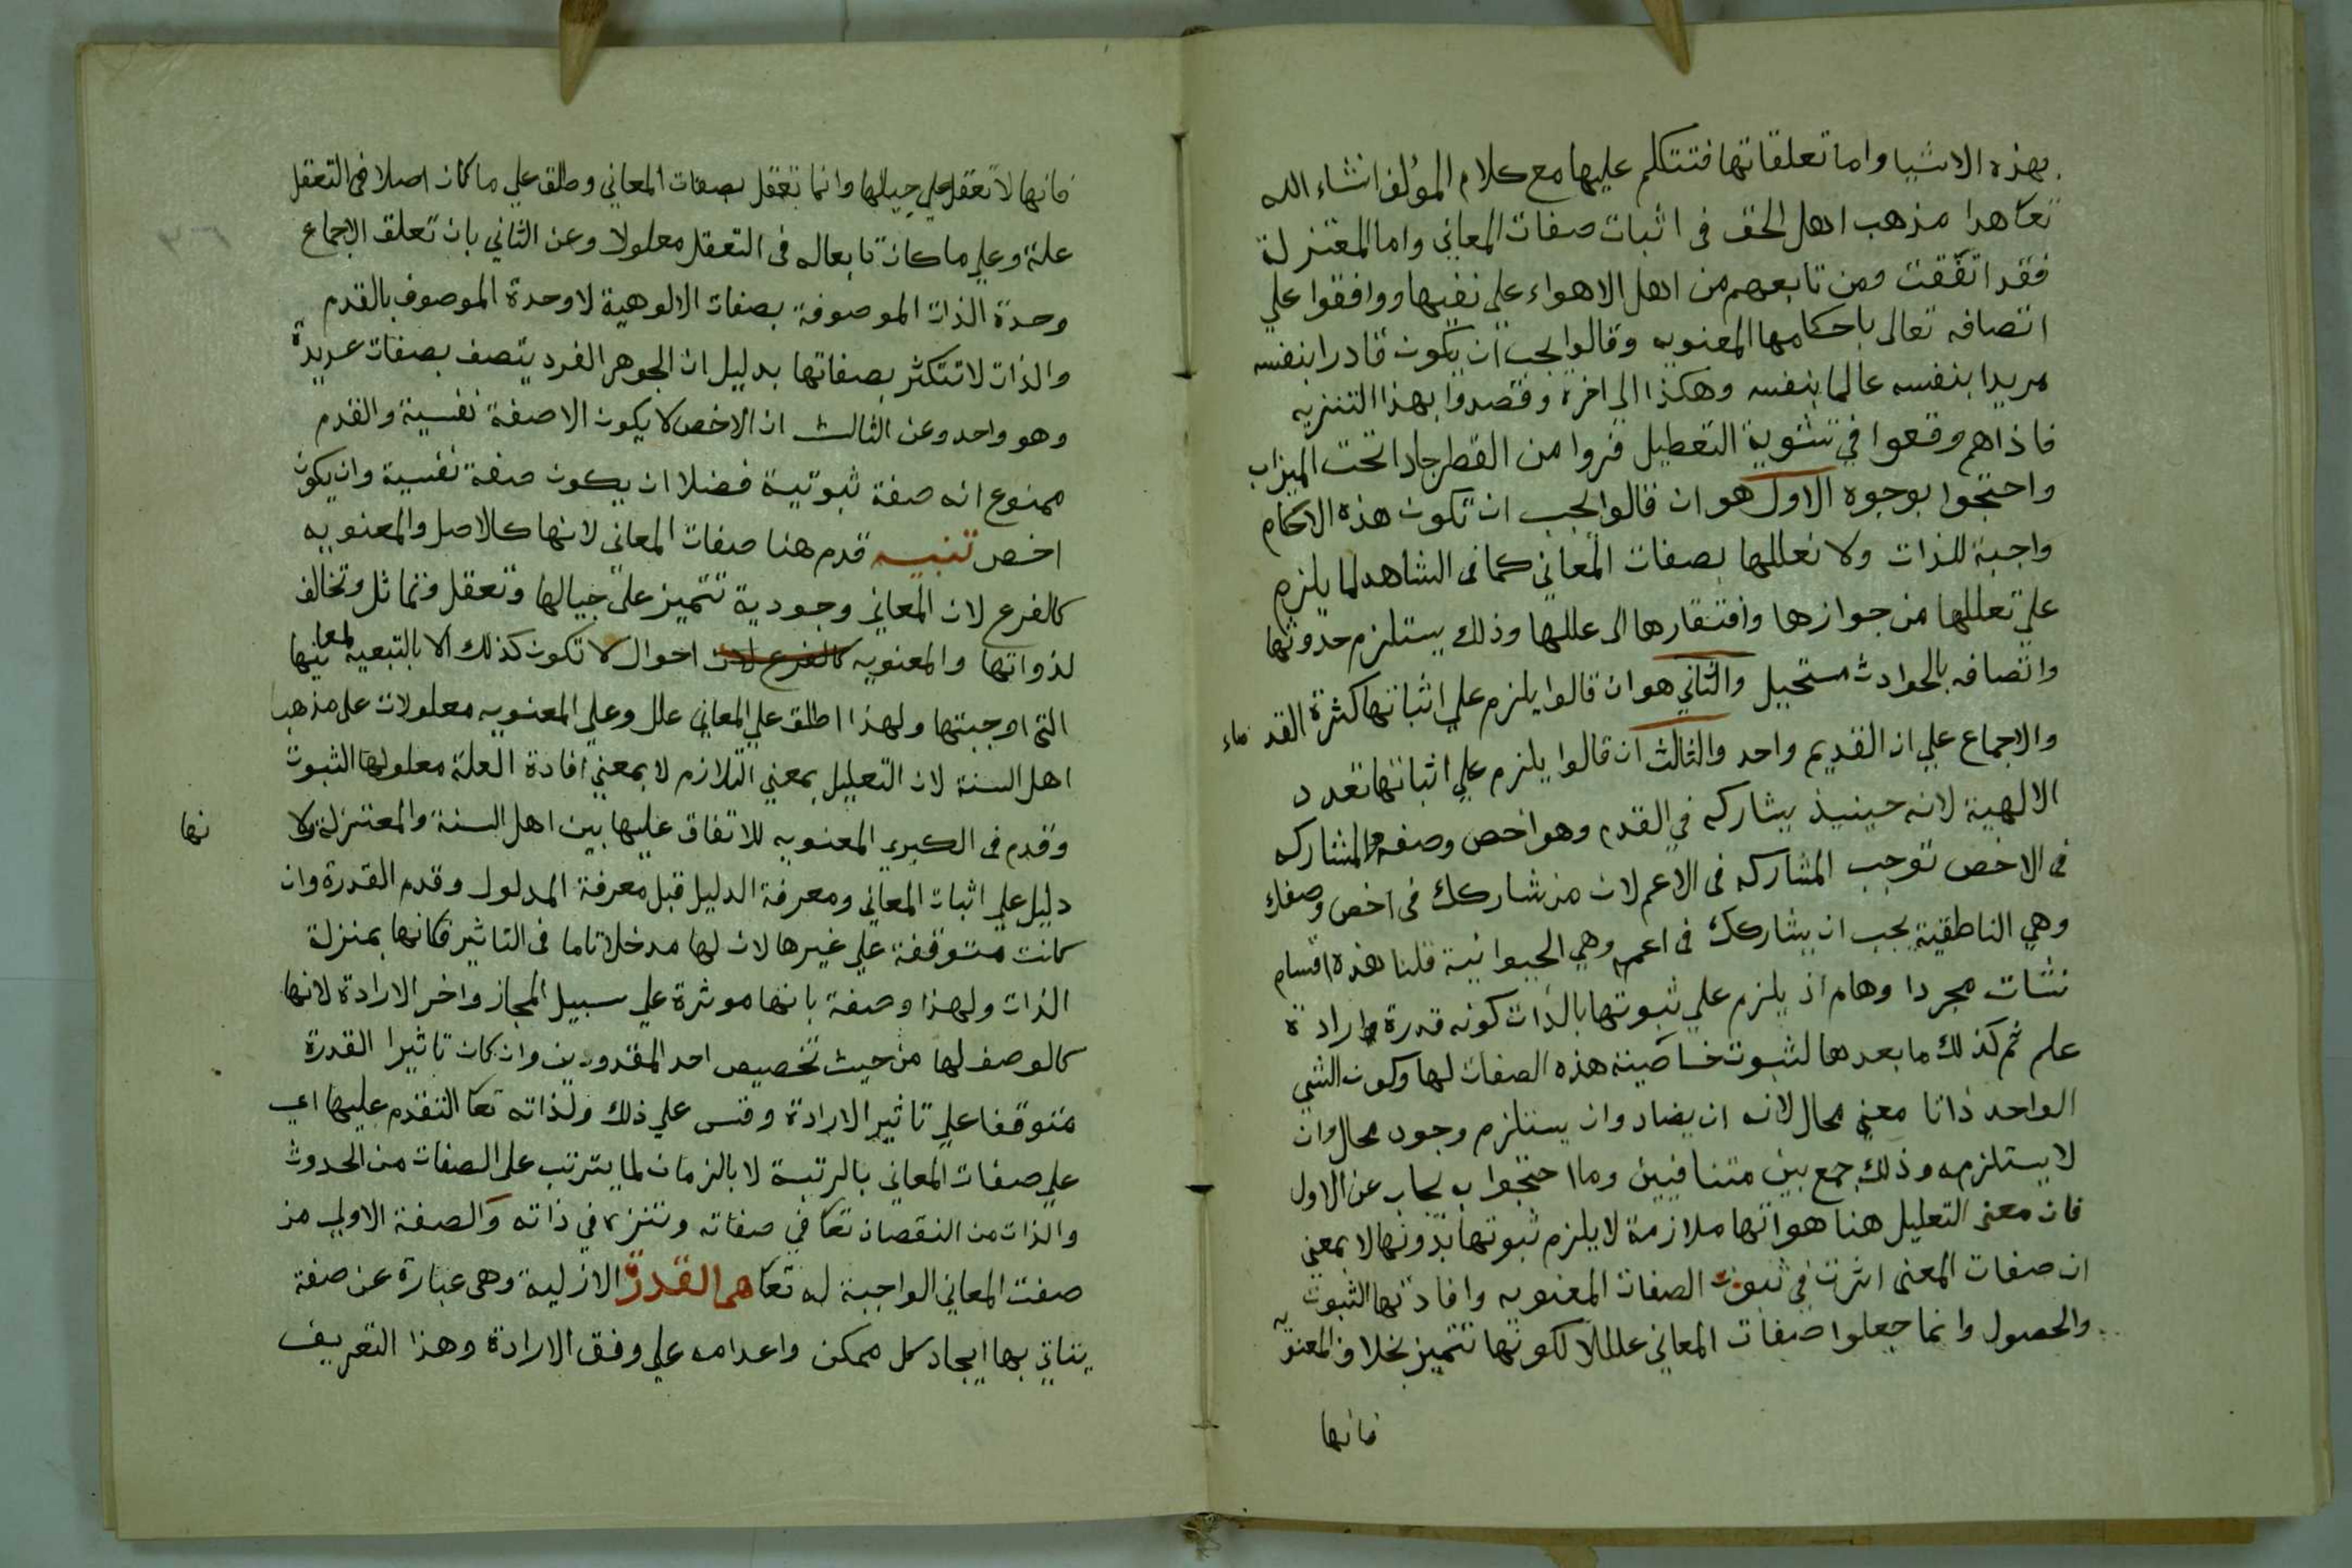 بهذه الاشيا واما تعلقاتها فنتكلم عليها مع كلام المؤلف انشاء الله
تعا هدا مذهب اهل الحق فى اثبات صفات المعاني واما المعتزلة
فقد اتفقت ومن تابعهم من اهل الاهواء علي نفيها ووافقوا علي
اتصافه تعالى باحكامها المعنويه وقالوا يجب ان يكون قادرا بنفسه
مريدا بنفسه عالما بنفسه وهكذا الي اخره وقصدوا بهذا التنزيه
فاذاهم وقعوا في تشوية التعطيل فروا من القطر جاداتحت الميزاب
واحتجوا بوجوه الاول هو ان قالوا يجب ان تكون هذه الاحكام
واجبة للذات ولا نعللها بصفات المعاني كما فى الشاهد لما يلزم
علي تعللها من جوازها وافتقارها الى عللها وذلك يستلزم حدوثها
واتصافه بالحوادث مستحيل والثاني هو ان قالوا يلزم علي اثباتها كثرة القدماء
والاجماع علي ان القديم واحد والثالث ان قالوا يلزم علي اثباتها تعدد
الالهية لانه حينيذ يشاركه في القدم وهو اخص وصفه والمشاركه
فى الاخص توجب المشاركه فى الاعم لان من شاركك فى اخص وصفك
وهي الناطقية يجب ان يشاركك فى اعمه وهي الحيوانية قلنا هذه اقسام
نشات مجردا وهام اذ يلزم علي ثبوتها بالذات كونه قدرة وارادة
علم ثم كذلك ما بعدها لثبوت خاصية هذه الصفات لها وكون الشي
الواحد ذاتا معني محال لانه ان يضاد وان يستلزم وجود محال وان
لا يستلزمه وذلك جمع بين متنافيين وما احتجوا به يجاب عن الاول
فان معنى التعليل هنا هو انها ملازمة لا يلزم ثبوتها بدونها لا بمعنى
ان صفات المعنى اثرت في ثبوت الصفات المعنويه وافادتها الثبوت
والحصول وانما جعلوا صفات المعاني عللا لكونها تتميز بخلاف المعنويه
فانها
فانها لا تعقل علي حيالها وانما تعقل بصفات المعاني وطلق علي ما كان اصلا فى التعقل
علة وعلي ما كان تابعا له فى التعقل معلولا وعن الثاني بان تعلق الاجماع
وحدة الذات الموصوفة بصفات الالوهية لا وحدة الموصوف بالقدم
والذات لا تتكثر بصفاتها بدليل ان الجوهر الفرد يتصف بصفات عديدة
وهو واحد وعن الثالث ان الاخص لا يكون الا صفة نفسية والقدم
ممنوع انه صفة ثبوتية فضلا ان يكون صفة نفسية وان يكون
اخص تنبيه قدم هنا صفات المعاني لانها كالاصل والمعنويه
كالفرع لان المعاني وجودية تتميز على حيالها وتعقل وتماثل وتخالف
لذواتها والمعنويه كالفرع لان احوال لا تكون كذلك الا بالتبعية لمعانيها
التى اوجبتها ولهذا اطلق علي المعاني علل وعلي المعنويه معلولات على مذهب
اهل السنة لان التعليل بمعني التلازم لا بمعني افادة العلة معلولها الثبوت
وقدم فى الكبرى المعنويه للاتفاق عليها بين اهل السنة والمعتزلة ولا
نها
دليل علي اثبات المعاني ومعرفة الدليل قبل معرفة المدلول وقدم القدرة وان
كانت متوقفة علي غيرها لان لها مدخلا تاما فى التاثير فكانها بمنزلة
الذات ولهذا وصفة بانها موثرة علي سبيل المجاز واخر الارادة لانها
كالوصف لها من حيث تخصيص احد المقدورين وان كان تاثيرا القدرة
متوقفا علي تاثير الارادة وقس علي ذلك ولذاته تعا التقدم عليها اي
علي صفات المعاني بالرتبة لا بالزمان لما يترتب على الصفات من الحدوث
والذات من النقصان تعا في صفاته وتنزه في ذاته والصفة الاولي من
صفت المعاني الواجبة له تعا هى القدرة الازلية وهى عبارة عن صفة
يتاتي بها ايجاد كل ممكن واعدامه علي وفق الارادة وهذا التعريف